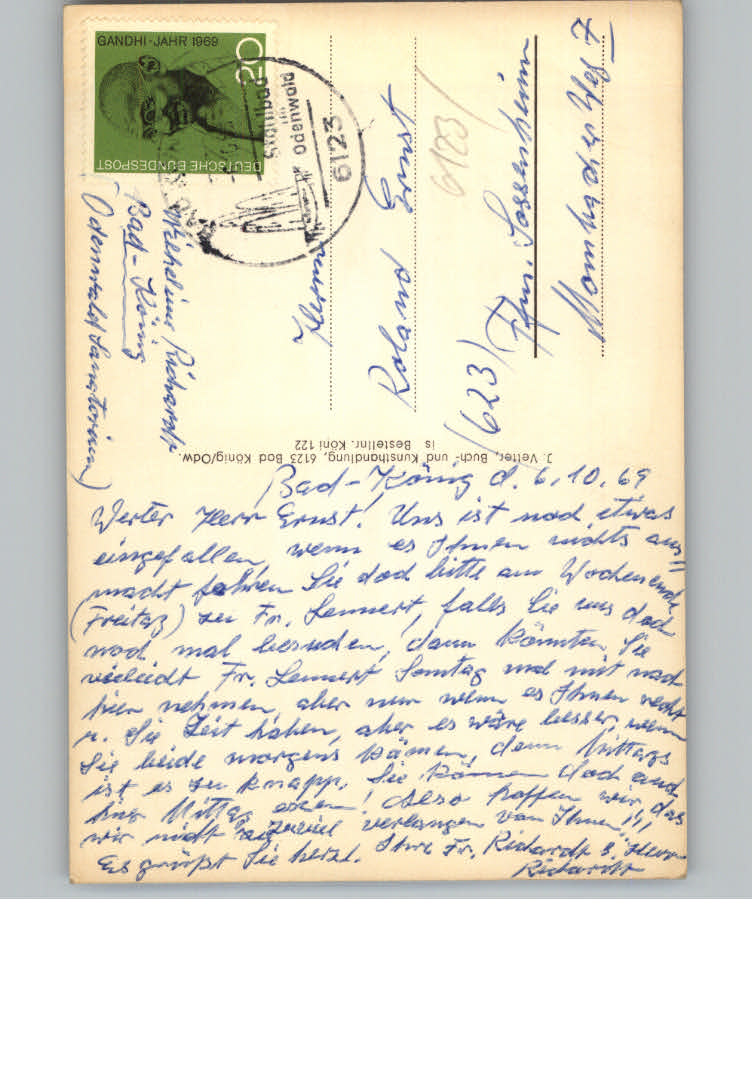 GANDHI-JAHR 1969
20
DEUTSCHE BUNDESPOST
Stahlbad
im
Odenwald
6123
Wilhelmine Richardt
Bad-König
(Odenwald Sanatorium)
Herrn
Roland Ernst
6123/
/623/ Ffm. Sossenheim
Weg 7
J. Vetter, Buch- und Kunsthandlung, 6123 Bad König/Odw.
Is Bestellnr. Köni 122
Bad-König d. 6.10.69
Werter Herr Ernst! Uns ist noch etwas
eingefallen, wenn es Ihnen nichts aus-
macht fahren Sie doch bitte am Wochenende
(Freitag) zu Fr. Lennert, falls Sie uns doch
noch mal besuchen, dann könnten Sie
vieleicht Fr. Lennert Sonntag mal mit nach
hier nehmen, aber nur wenn es Ihnen recht
u. Sie Zeit haben, aber es wäre besser, wenn
Sie beide morgens kämen, denn Mittags
ist es zu knapp. Sie können doch auch
hier Mittag essen! Also hoffen wir das
wir nicht zuviel verlangen von Ihnen!!!
Es grüßt Sie herzl. Ihre Fr. Richardt & Herr
Richardt